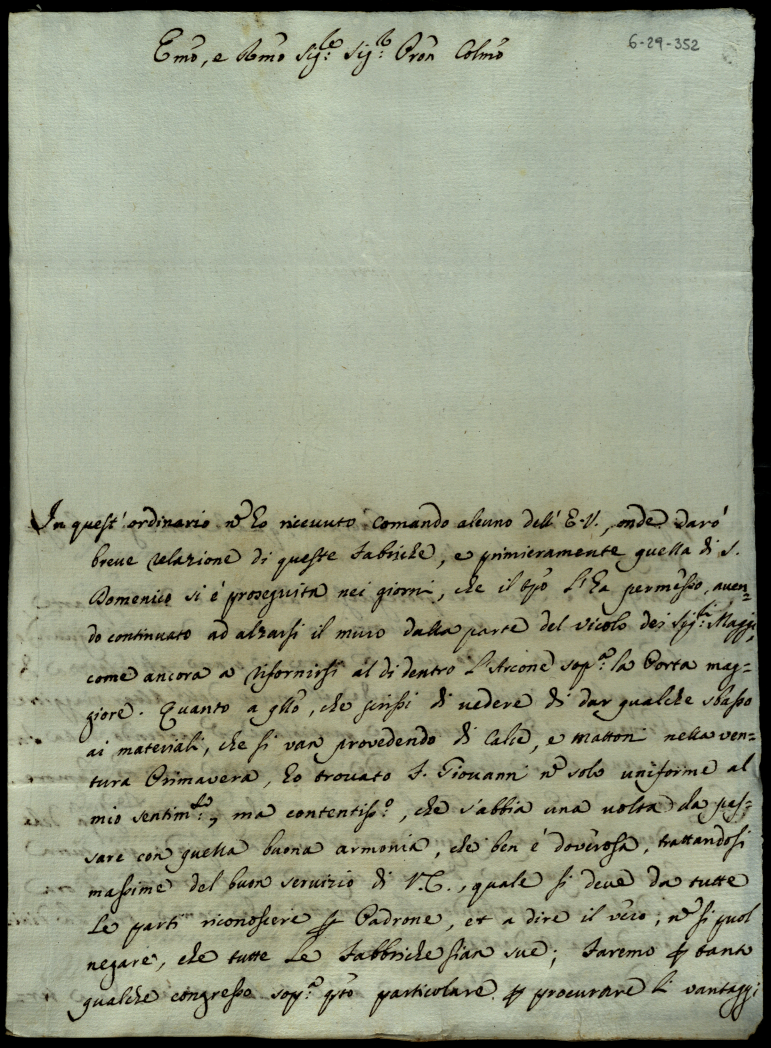 6-29-352
Emõ, e Rmõ Sig.re Sig.r Pron Colmõ
In quest' ordinario nō ho riceuuto comando alcuno dell' E.V., onde darò
breue relazione di queste Fabriche, e primieramente quella di S.
Domenico si è proseguita nei giorni, che il tpō l'ha permesso, auen=
do continuato ad alzarsi il muro dalla parte del vicolo dei Sig.ri Maggi,
come ancora a rifornirsi al di dentro l'Arcone sop.a la Porta mag=
giore. Quanto a qllō, che scrissi di uedere di dar qualche sbasso
ai materiali, che si van prouedendo di Calce, e mattoni nella uen=
tura Primauera, ho trouato F. Giouanni nō solo uniforme al
mio sentim.to, ma contentiss.o, che s'abbia una uolta da pas=
sare con quella buona armonia, che ben è douerosa, trattandosi
massime del buon seruizio di V.E., quale si deue da tutte
le parti riconoscere p Padrone, et a dire il uero, nō si puol
negare, che tutte le Fabbriche sian sue; Faremo p tanto
qualche congresso sop.a qsto particolare p procurare li uantaggi